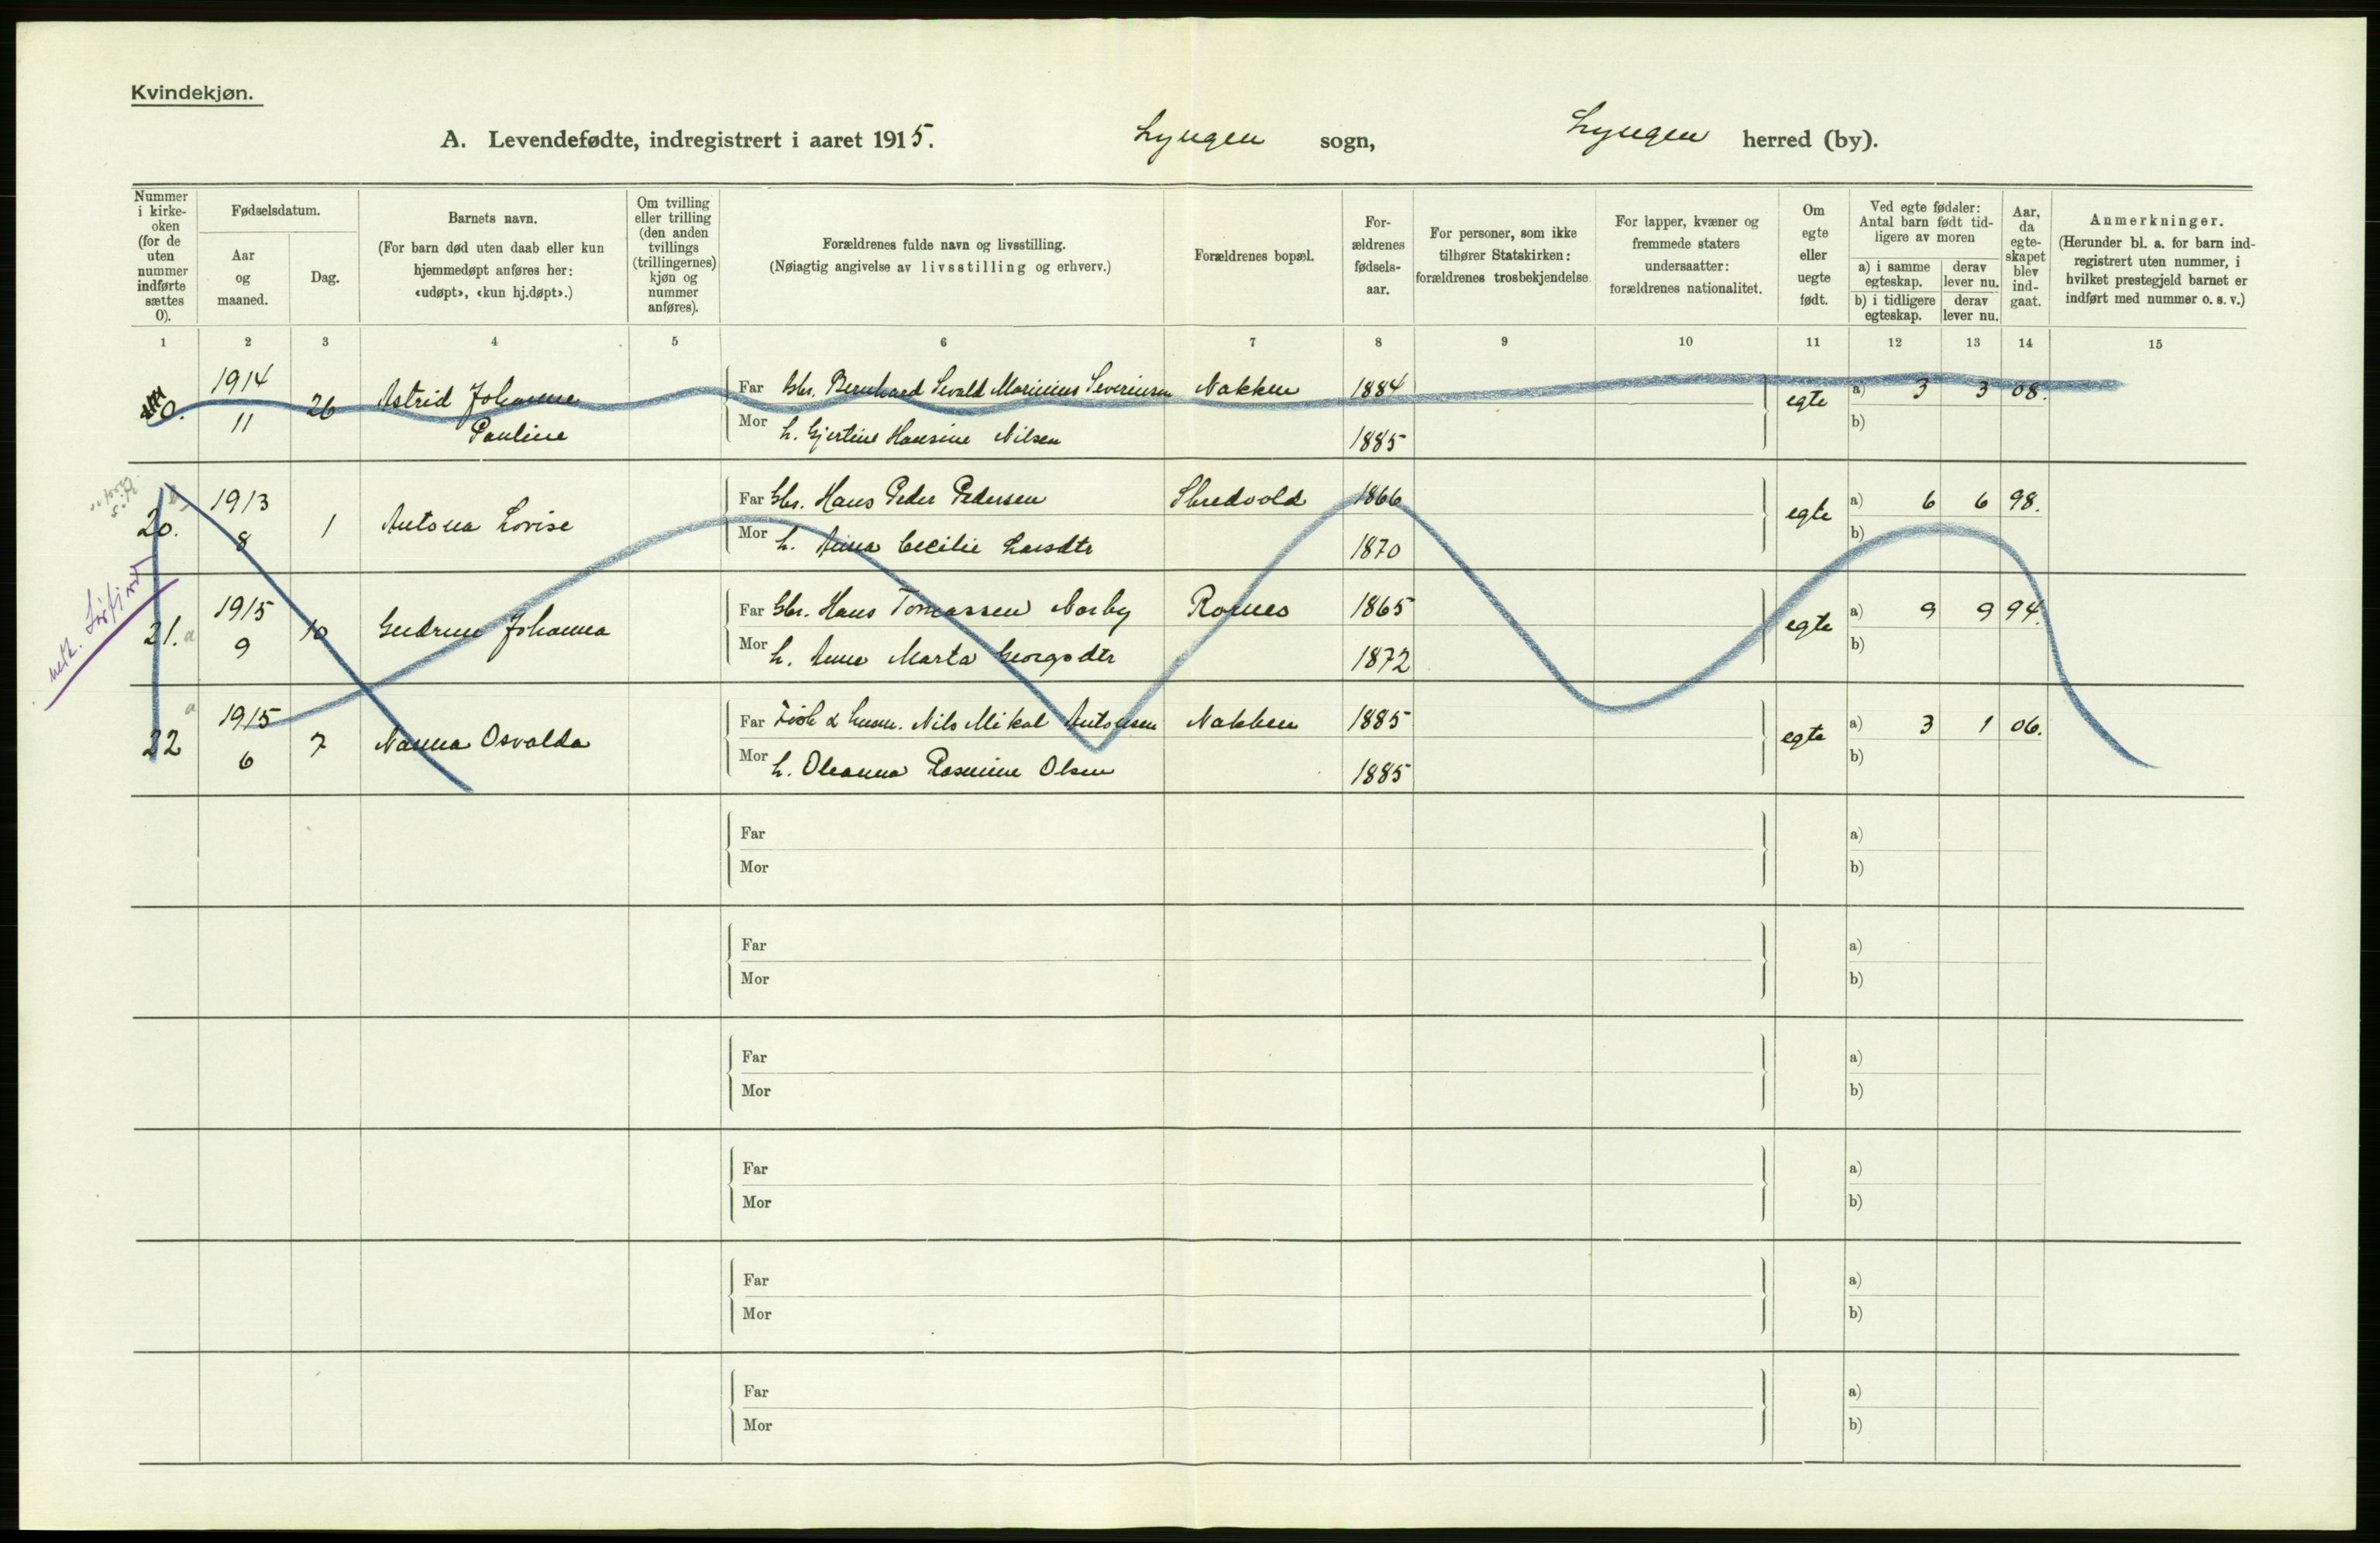 Kvindekjøn.
A. Levendefødte, indregistrert i aaret 1915. Lyngen sogn, Lyngen herred (by).
Nummer i kirke-oken (for de uten nummer indførte sættes 0).
Fødselsdatum.
Aar og maaned.
Dag.
Barnets navn.
(For barn død uten daab eller kun hjemmedøpt anføres her: «udøpt», «kun hj.døpt».)
Om tvilling eller trilling (den anden tvillings (trillingernes) kjøn og nummer anføres).
Forældrenes fulde navn og livsstilling.
(Nøiagtig angivelse av livsstilling og erhverv.)
Forældrenes bopæl.
For-ældrenes fødsels-aar.
For personer, som ikke tilhører Statskirken: forældrenes trosbekjendelse.
For lapper, kvæner og fremmede staters undersaatter: forældrenes nationalitet.
Om egte eller uegte født.
Ved egte fødsler: Antal barn født tid-ligere av moren
a) i samme egteskap.
derav lever nu.
b) i tidligere egteskap.
derav lever nu.
Aar, da egte-skapet blev ind-gaat.
Anmerkninger.
(Herunder bl. a. for barn ind-registrert uten nummer, i hvilket prestegjeld barnet er indført med nummer o. s. v.)
1 2 3 4 5 6 7 8 9 10 11 12 13 14 15
0. 1914 11 26 Astrid Johanne Pauline
Far Gbr. Bernhard Sevald Marinius Severinsen Nakken 1884 egte a) 3 3 08.
Mor h. Gjertine Hansine Nilsen 1885 b)
20. 1913 8 1 Antona Lovise
Far Gbr. Hans Peder Pedersen 1866 egte a) 6 6 98.
Mor h. Anna Cecilie Larsdtr 1870 b)
21. a 1915 9 10 Gudrun Johanna
Far Gbr. Hans Tomassen Norby 1865 egte a) 9 9 94.
Mor h. Anne Marta Georgsdtr 1872 b)
22 a 1915 6 7 Nanna Osvalda
Far Fisk & Nils Mikal Antonsen Nakken 1885 egte a) 3 1 06.
Mor h. Oleanna Rasmine Olsen 1885 b)
Far a)
Mor b)
Far a)
Mor b)
Far a)
Mor b)
Far a)
Mor b)
Far a)
Mor b)
Far a)
Mor b)